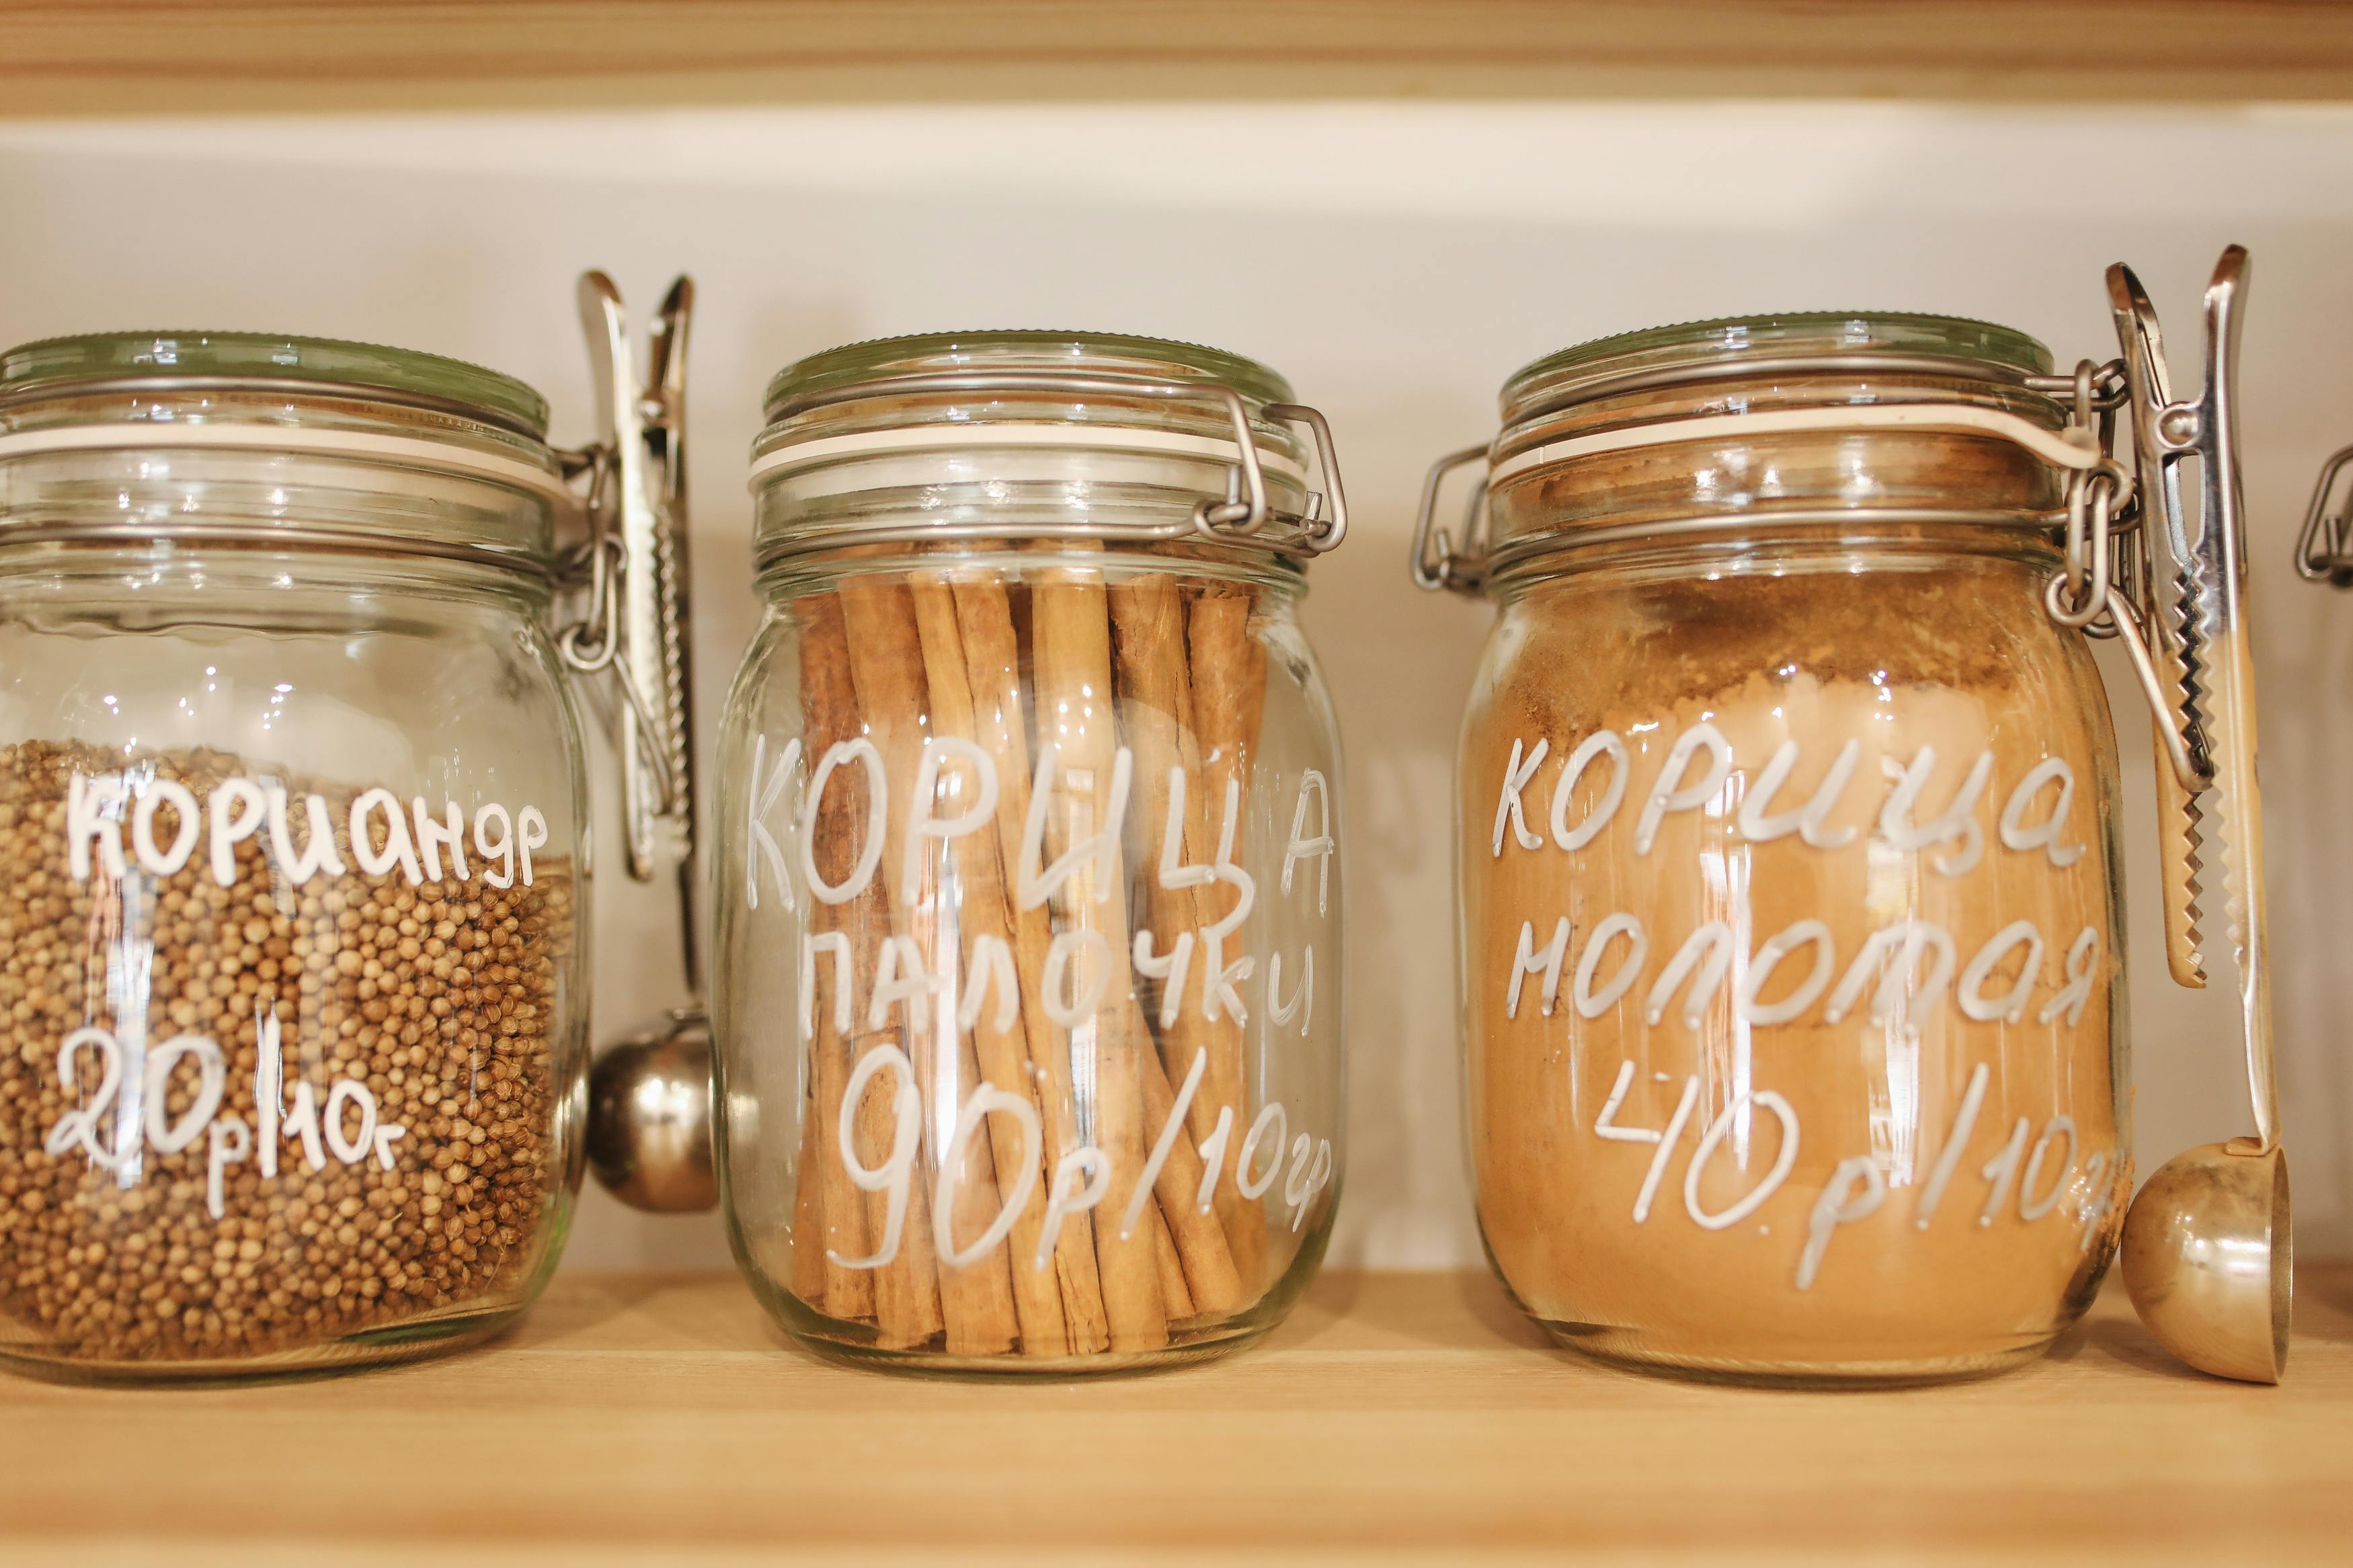 кориандр
20р/10г
КОРИЦА
ПАЛОЧКИ
90р/10гр
корица
молотая
40р/10гр